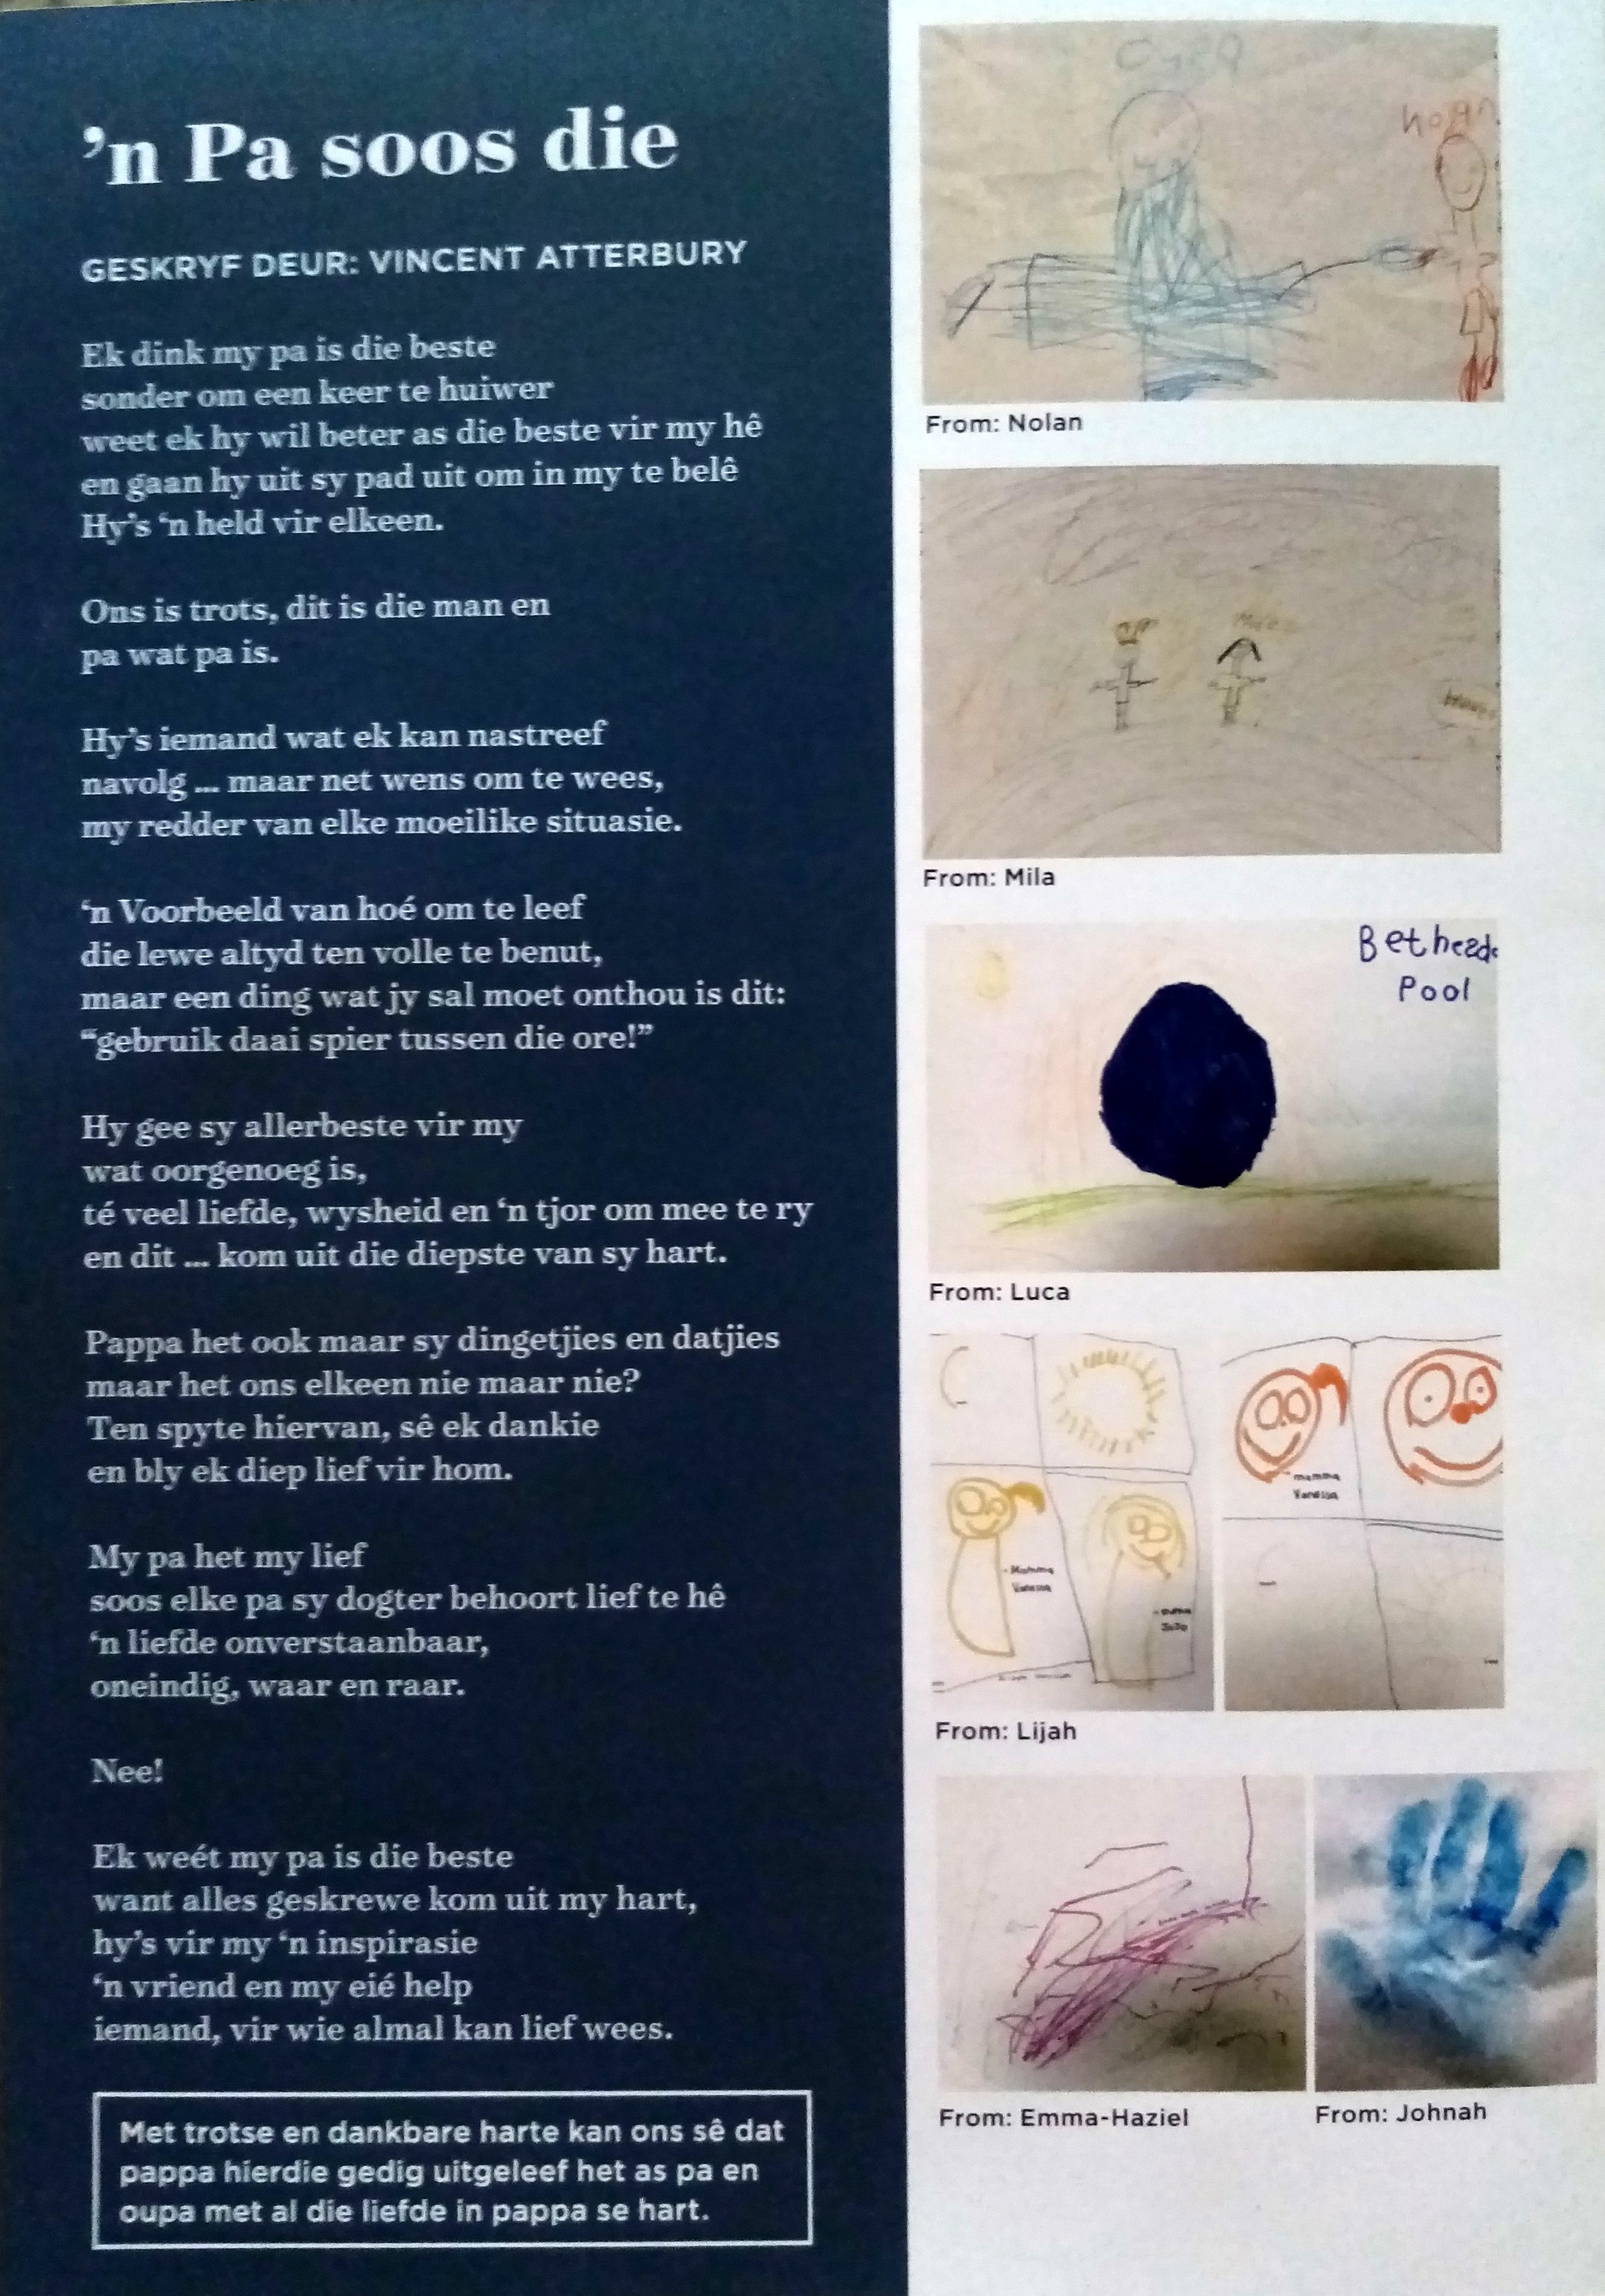 ’n Pa soos die
GESKRYF DEUR: VINCENT ATTERBURY
Ek dink my pa is die beste
sonder om een keer te huiwer
weet ek hy wil beter as die beste vir my hê
en gaan hy uit sy pad uit om in my te belê
Hy’s ‘n held vir elkeen.
Ons is trots, dit is die man en
pa wat pa is.
Hy’s iemand wat ek kan nastreef
navolg ... maar net wens om te wees,
my redder van elke moeilike situasie.
‘n Voorbeeld van hoé om te leef
die lewe altyd ten volle te benut,
maar een ding wat jy sal moet onthou is dit:
“gebruik daai spier tussen die ore!”
Hy gee sy allerbeste vir my
wat oorgenoeg is,
té veel liefde, wysheid en ‘n tjor om mee te ry
en dit ... kom uit die diepste van sy hart.
Pappa het ook maar sy dingetjies en datjies
maar het ons elkeen nie maar nie?
Ten spyte hiervan, sê ek dankie
en bly ek diep lief vir hom.
My pa het my lief
soos elke pa sy dogter behoort lief te hê
‘n liefde onverstaanbaar,
oneindig, waar en raar.
Nee!
Ek weét my pa is die beste
want alles geskrewe kom uit my hart,
hy’s vir my ‘n inspirasie
‘n vriend en my eié help
iemand, vir wie almal kan lief wees.
Met trotse en dankbare harte kan ons sê dat
pappa hierdie gedig uitgeleef het as pa en
oupa met al die liefde in pappa se hart.
From: Nolan
From: Mila
Pool
From: Luca
- mamma
Vanessa
- Mamma
Vanessa
From: Lijah
From: Emma-Haziel
From: Johnah